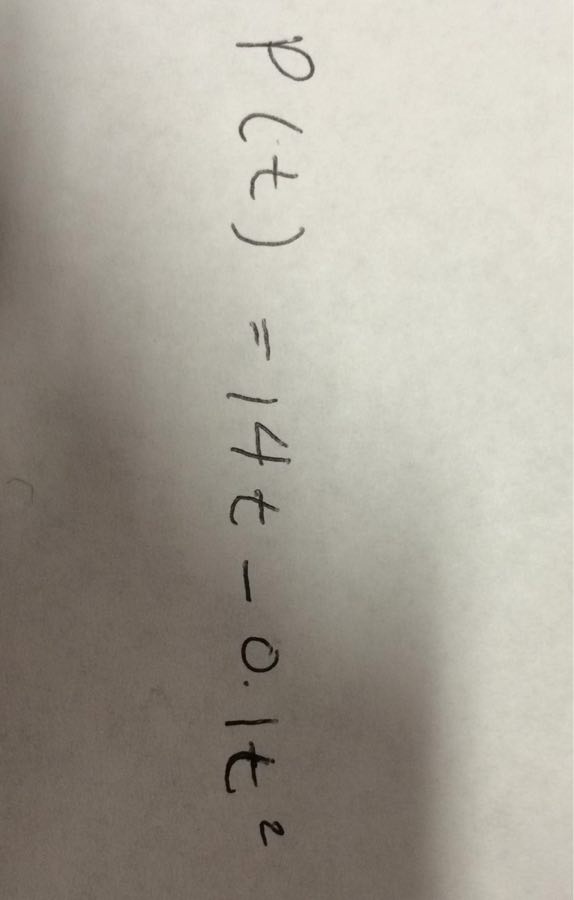 P(t) = 14t - 0.1t²